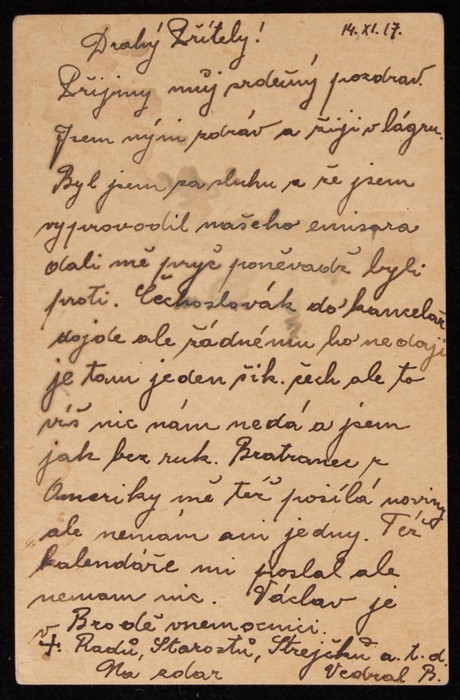 14.XI.17.
Drahý Přítely!
Přijmy můj srdečný pozdrav.
Jsem nýni zdráv a žiji v lágru.
Byl jsem za sluhu a že jsem
vyprovodil našeho emisara
dali mě pryč poněvadž byli
proti. Čechoslovák do kancelář
dojde ale žádnému ho nedají
je tam jeden šik. čech ale to
víš nic nám nedá a jsem
jak bez ruk. Bratranec z
Ameriky mě též posílá noviny
ale nemám ani jedny. Též
kalendáře mi poslal ale
nemam nic. Václav je
v Brodě vnemocnici.
Radů, Starostů, Strejčků a.t.d.
Na zdar Vedral B.